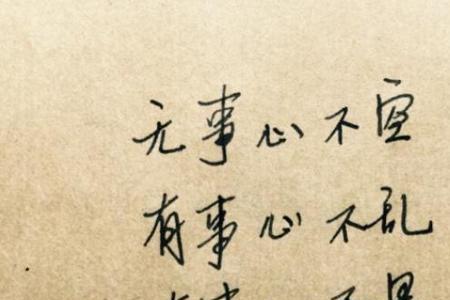 无事心不空
有事心不乱